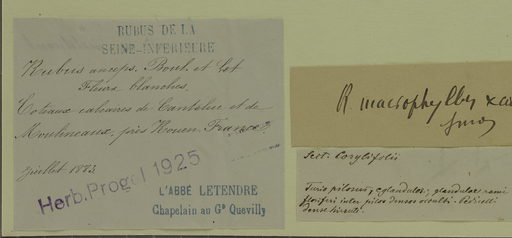 RUBUS DE LA
SEINE-INFÉRIEURE
Rubus anceps. Boul. et Let.
Fleurs blanches.
Coteaux calcaires de Canteleu et de
Moulineaux, près Rouen. France
juillet 1883.
Herb. Progel 1925
L'ABBÉ LETENDRE
Chapelain au Gd Quevilly
R. macrophyllus x
Sect. Corylifolii
Turio pilosus, eglandulos; glandulae rami
floriferi inter pilos densos occulti. Pedicelli
dense hirsuti.